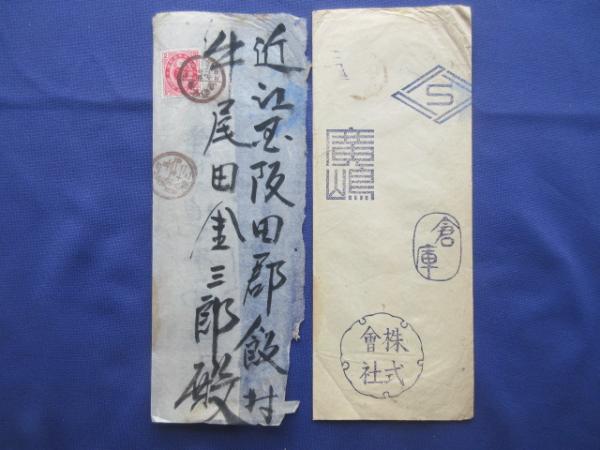 近江国阪田郡飯村
牛尾田金三郎殿
S
廣嶋
倉庫
株式
會社